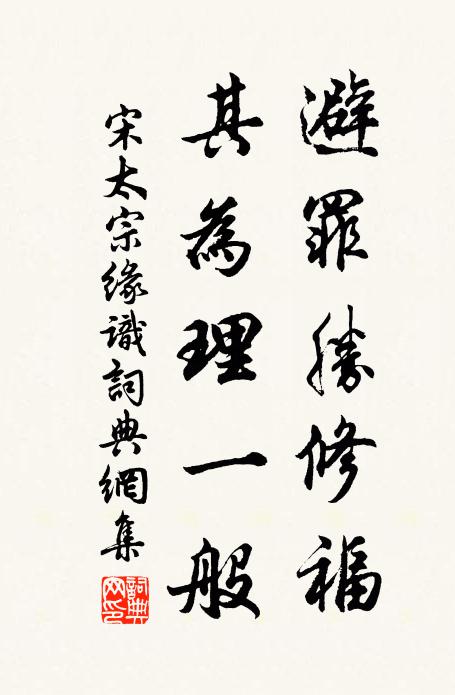 避罪勝修福
其為理一般
宋太宗緣識詞典網集
詞典網印